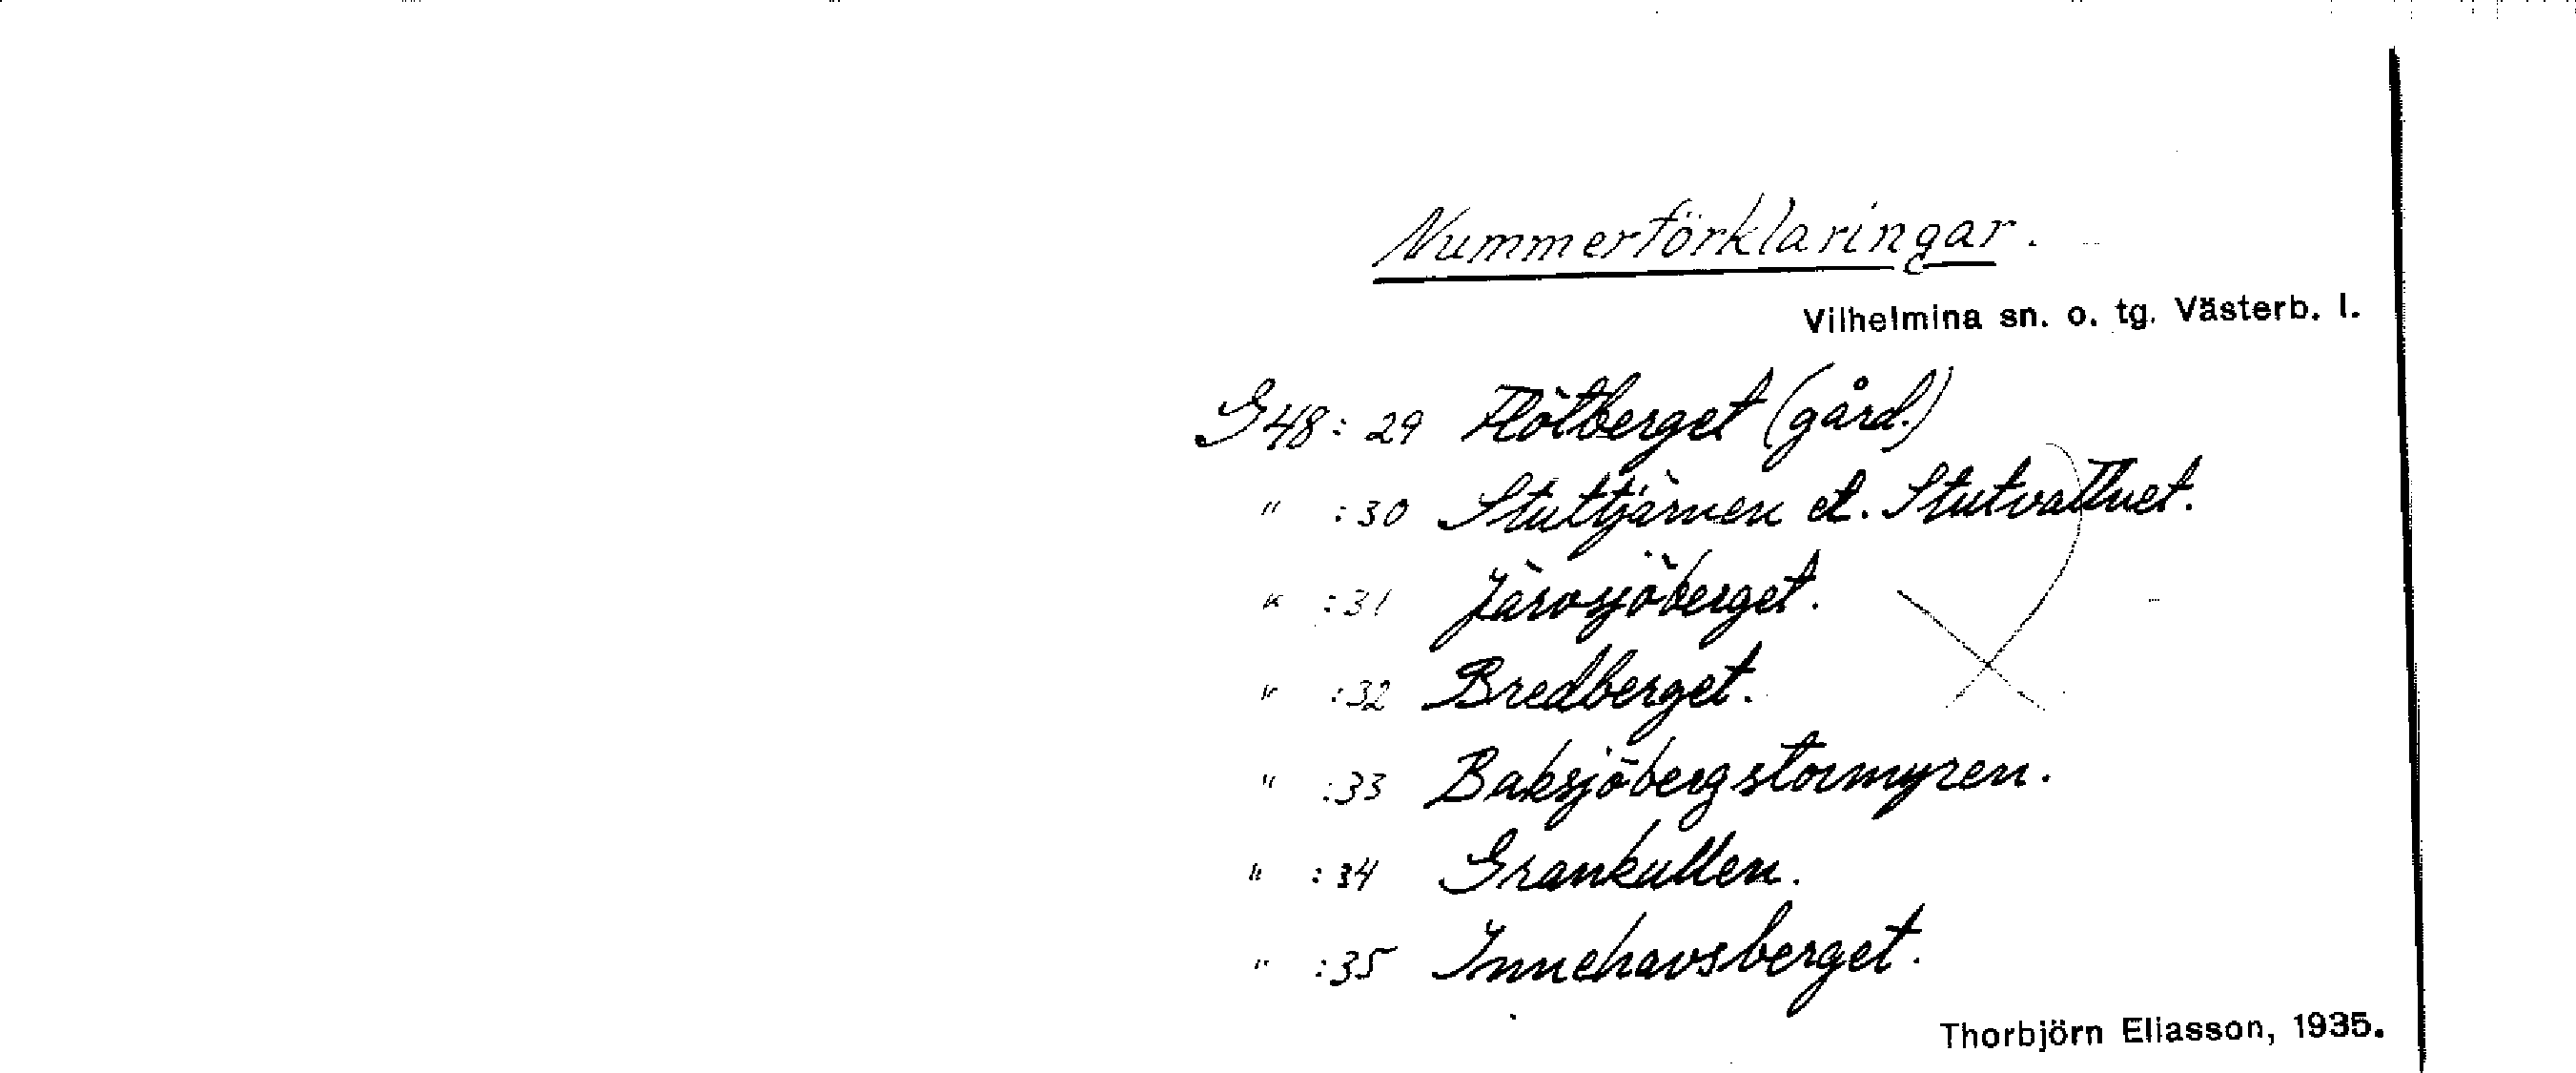 Nummerförklaringar.
Vilhelmina sn. o. tg. Västerb. l.
G48: 29 Flötberget (gård.)
" :30 Stuttjärnen el. Stutvattnet.
" :31 Järvsjöberget.
" :32 Bredberget.
" :33 Baksjöbergstormyren.
" :34 Grankullen.
" :35 Innehavsberget.
Thorbjörn Eliasson, 1935.